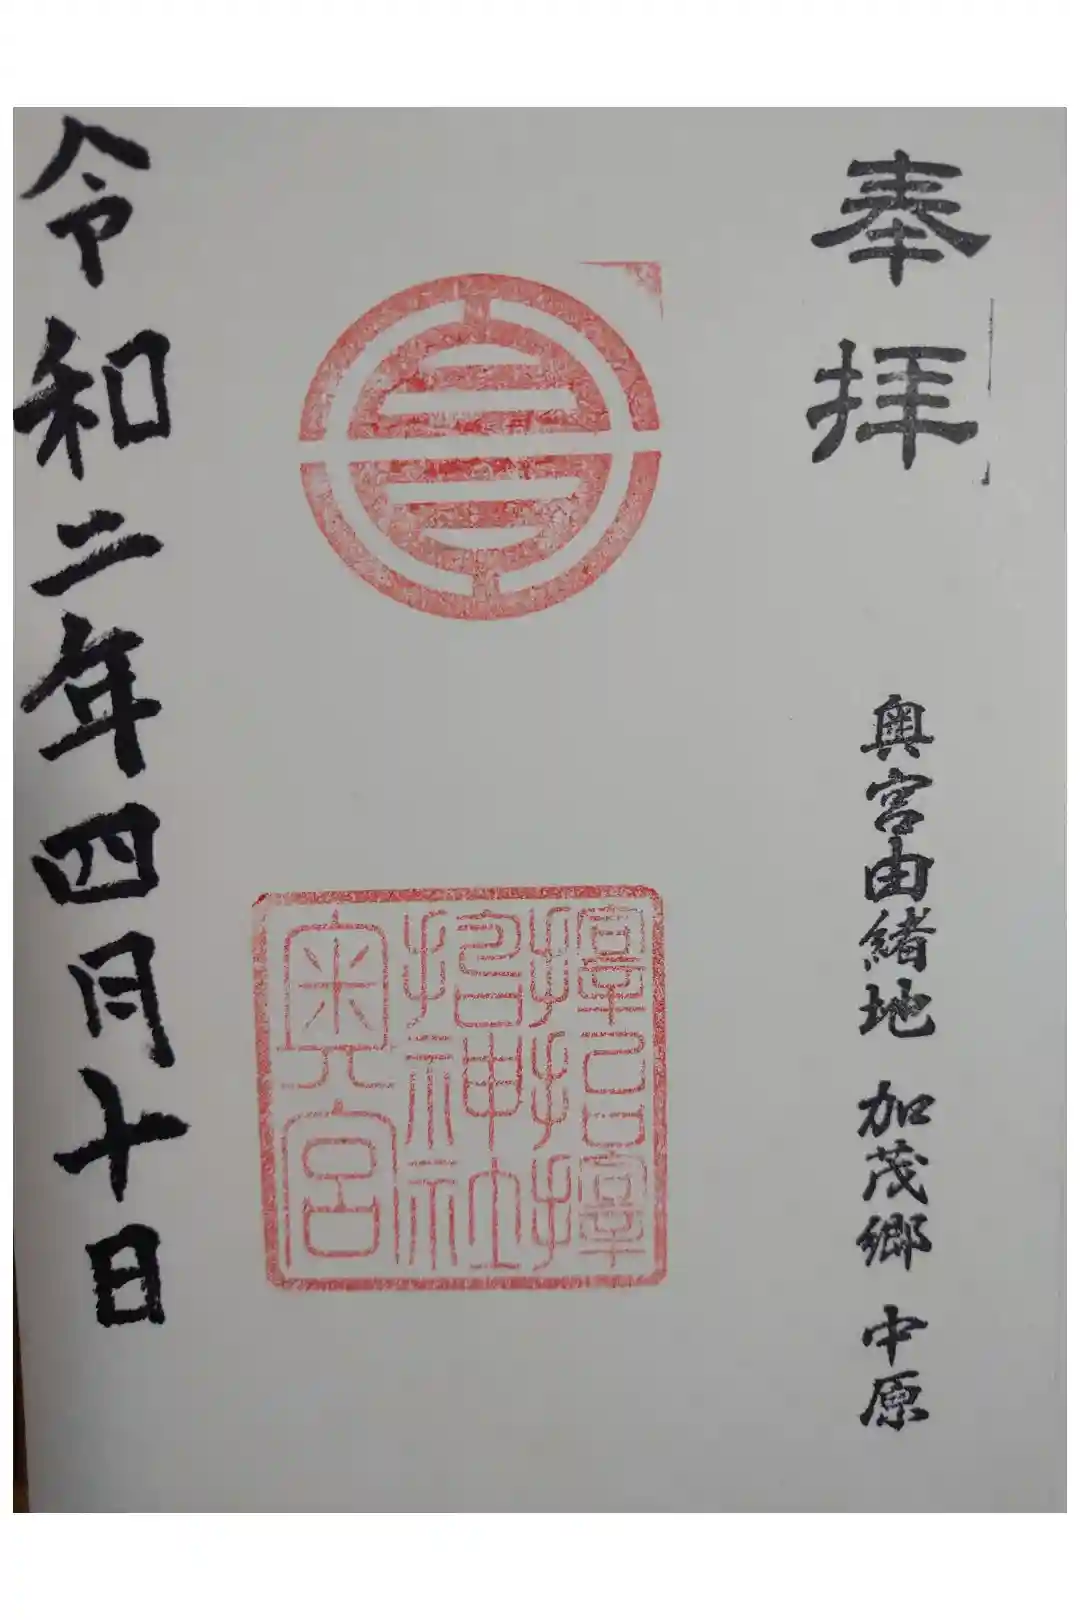 奉拝
奥宮由緒地 加茂郷 中原
招神社
奥宮
令和二年四月十日